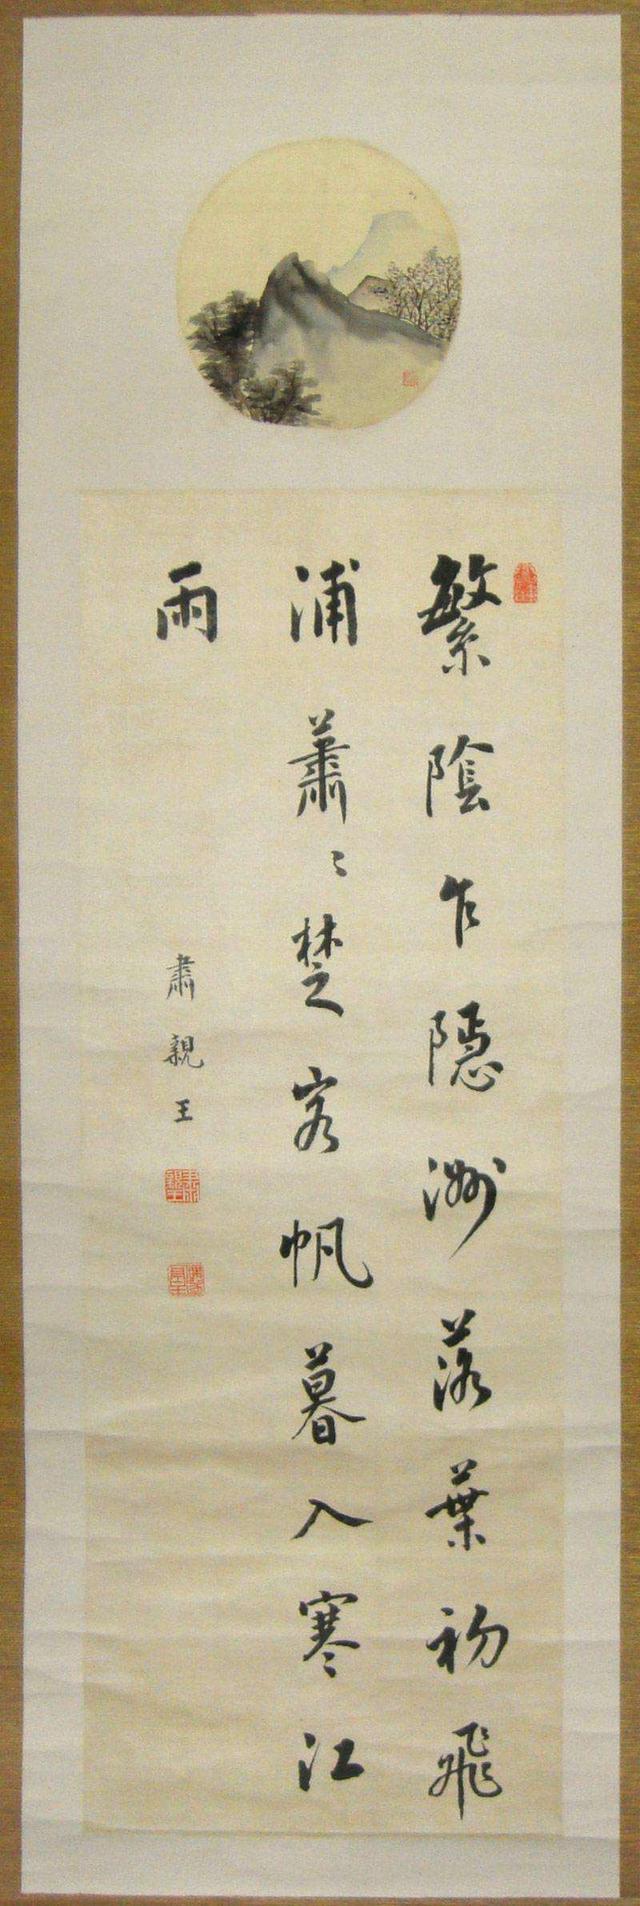 繁陰乍隱洲落葉初飛
浦蕭〻楚客帆暮入寒江
雨
肅親王